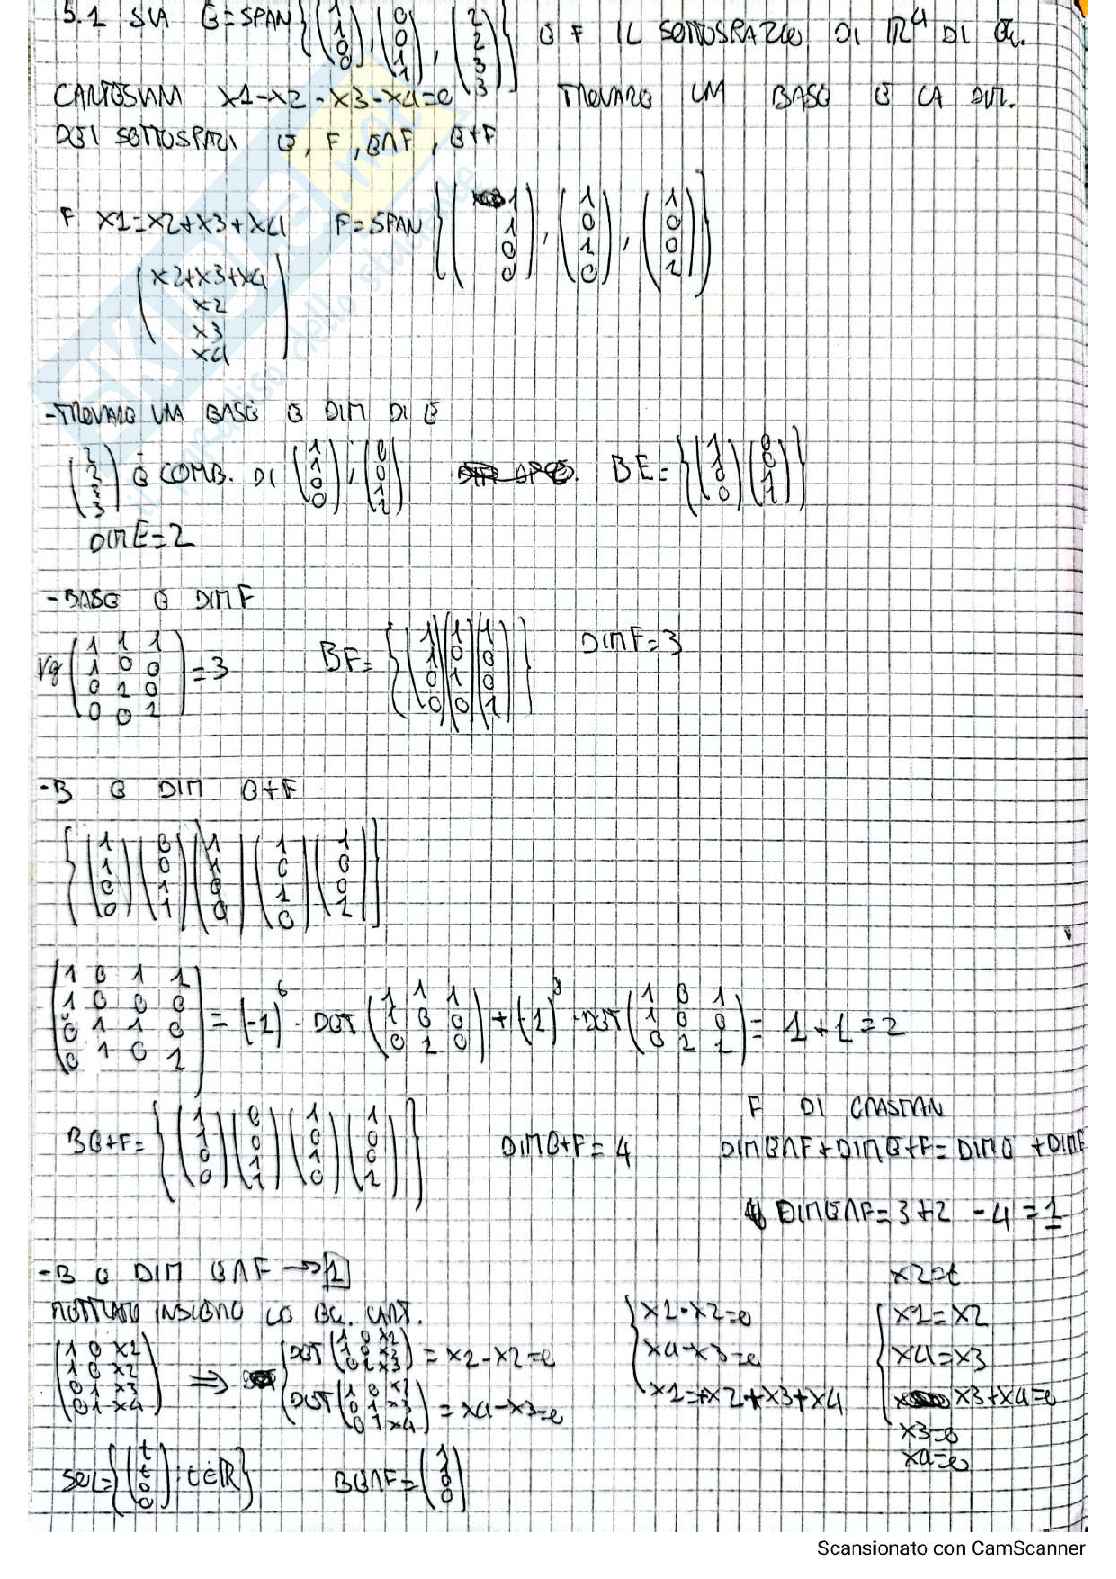 5.1 SIA E=SPAN{(1 1 0 0), (0 0 1 1), (2 2 3 3)} E F IL SOTTOSPAZIO DI R4 DI EQ.
CARTESIANA x1-x2-x3-x4=0 TROVARE UNA BASE E LA DIM.
DEI SOTTOSPAZI E, F, E∩F, E+F
F x1=x2+x3+x4 F=SPAN{(1 1 0 0), (1 0 1 0), (1 0 0 1)}
(x2+x3+x4
x2
x3
x4)
-TROVARE UNA BASE E DIM DI E
(2 2 3 3) È COMB. DI (1 1 0 0), (0 0 1 1) BE={(1 1 0 0)(0 0 1 1)}
DIM E=2
-BASE E DIM F
rg(1 1 1
1 0 0
0 1 0
0 0 1) =3 BF={(1 1 0 0)(1 0 1 0)(1 0 0 1)} DIM F=3
-B E DIM E+F
{(1 1 0 0)(0 0 1 1)(1 1 0 0)(1 0 1 0)(1 0 0 1)}
(1 0 1 1
1 0 0 0
0 1 1 0
0 1 0 1) = (-1)^6 · DET(1 1 1
1 0 0
0 1 0) + (-1)^8 · DET(1 0 1
1 0 0
0 1 1) = 1+1=2
F DI GRASSMAN
BE+F={(1 1 0 0)(0 0 1 1)(1 0 1 0)(1 0 0 1)} DIM E+F=4 DIM E∩F+DIM E+F=DIM E+DIM F
DIM E∩F=3+2-4=1
-B E DIM E∩F → 1
METTIAMO INSIEME LE EQ. CART.
(1 0 x2
1 0 x2
0 1 x3
0 1 x4) ⇒ {DET(1 0 x2
1 0 x3
0 1 x3) = x2-x2=0
DET(1 0 x1
0 1 x3
0 1 x4) = x4-x3=0
{x1-x2=0
x4-x3=0
x1=+x2+x3+x4
x2=t
{x1=x2
x4=x3
x3+x4=0
x3=0
x4=0
SOL={(t t 0 0) : t∈R} BE∩F=(1 1 0 0)
SKUOLA.net
Scansionato con CamScanner